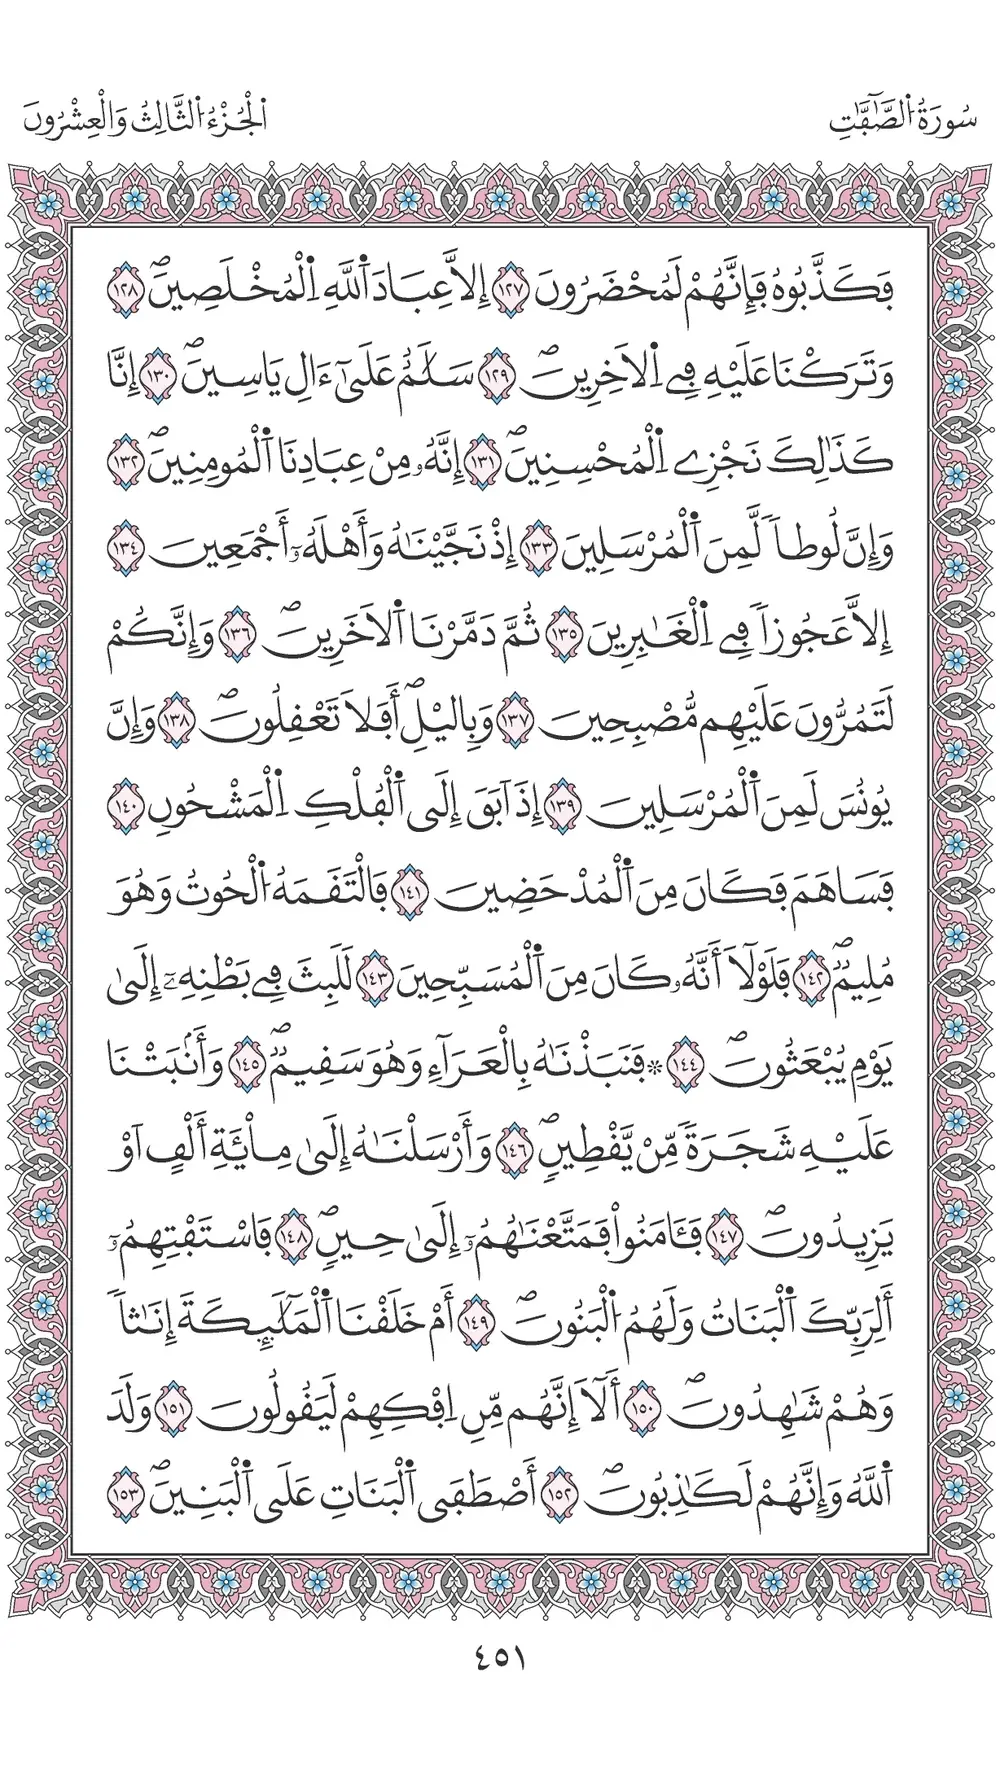 سُورَةُ اُ۬لصَّٰٓفَّٰتِ
اَ۬لْجُزْءُ اُ۬لثَّالِثُ وَالْعِشْرُونَ
فَكَذَّبُوهُ فَإِنَّهُمْ لَمُحْضَرُونَ ١٢٧ إِلَّا عِبَادَ اَ۬للَّهِ اِ۬لْمُخْلَصِينَۖ ١٢٨
وَتَرَكْنَا عَلَيْهِ فِے اِ۬لَاخِرِينَۖ ١٢٩ سَلَٰمٌ عَلَىٰٓ ءَالِ يَاسِينَۖ ١٣٠ إِنَّا
كَذَٰلِكَ نَجْزِے اِ۬لْمُحْسِنِينَۖ ١٣١ إِنَّهُۥ مِنْ عِبَادِنَا اَ۬لْمُومِنِينَۖ ١٣٢
وَإِنَّ لُوطاٗ لَّمِنَ اَ۬لْمُرْسَلِينَ ١٣٣ إِذْ نَجَّيْنَٰهُ وَأَهْلَهُۥٓ أَجْمَعِينَ ١٣٤
إِلَّا عَجُوزاٗ فِے اِ۬لْغَٰبِرِينَ ١٣٥ ثُمَّ دَمَّرْنَا اَ۬لَاخَرِينَۖ ١٣٦ وَإِنَّكُمْ
لَتَمُرُّونَ عَلَيْهِم مُّصْبِحِينَ ١٣٧ وَبِاليْلِۖ أَفَلَا تَعْقِلُونَۖ ١٣٨ وَإِنَّ
يُونُسَ لَمِنَ اَ۬لْمُرْسَلِينَ ١٣٩ إِذَ اَبَقَ إِلَى اَ۬لْفُلْكِ اِ۬لْمَشْحُونِ ١٤٠
فَسَاهَمَ فَكَانَ مِنَ اَ۬لْمُدْحَضِينَ ١٤١ فَالْتَقَمَهُ اُ۬لْحُوتُ وَهُوَ
مُلِيمٞۖ ١٤٢ فَلَوْلَآ أَنَّهُۥ كَانَ مِنَ اَ۬لْمُسَبِّحِينَ ١٤٣ لَلَبِثَ فِے بَطْنِهِۦٓ إِلَىٰ
يَوْمِ يُبْعَثُونَۖ ١٤٤ ۞ فَنَبَذْنَٰهُ بِالْعَرَآءِ وَهُوَ سَقِيمٞۖ ١٤٥ وَأَنۢبَتْنَا
عَلَيْهِ شَجَرَةٗ مِّنْ يَّقْطِينٖۖ ١٤٦ وَأَرْسَلْنَٰهُ إِلَىٰ مِاْئَةِ أَلْفٍ اَوْ
يَزِيدُونَۖ ١٤٧ فَـَٔامَنُواْ فَمَتَّعْنَٰهُمُۥٓ إِلَىٰ حِينٖۖ ١٤٨ فَاسْتَفْتِهِمُۥٓ
أَلِرَبِّكَ اَ۬لْبَنَاتُ وَلَهُمُ اُ۬لْبَنُونَۖ ١٤٩ أَمْ خَلَقْنَا اَ۬لْمَلَٰٓئِكَةَ إِنَٰثاٗ
وَهُمْ شَٰهِدُونَۖ ١٥٠ أَلَآ إِنَّهُم مِّنِ اِفْكِهِمْ لَيَقُولُونَ ١٥١ وَلَدَ
اَ۬للَّهُ وَإِنَّهُمْ لَكَٰذِبُونَۖ ١٥٢ أَصْطَفَى اَ۬لْبَنَاتِ عَلَى اَ۬لْبَنِينَۖ ١٥٣
٤٥١